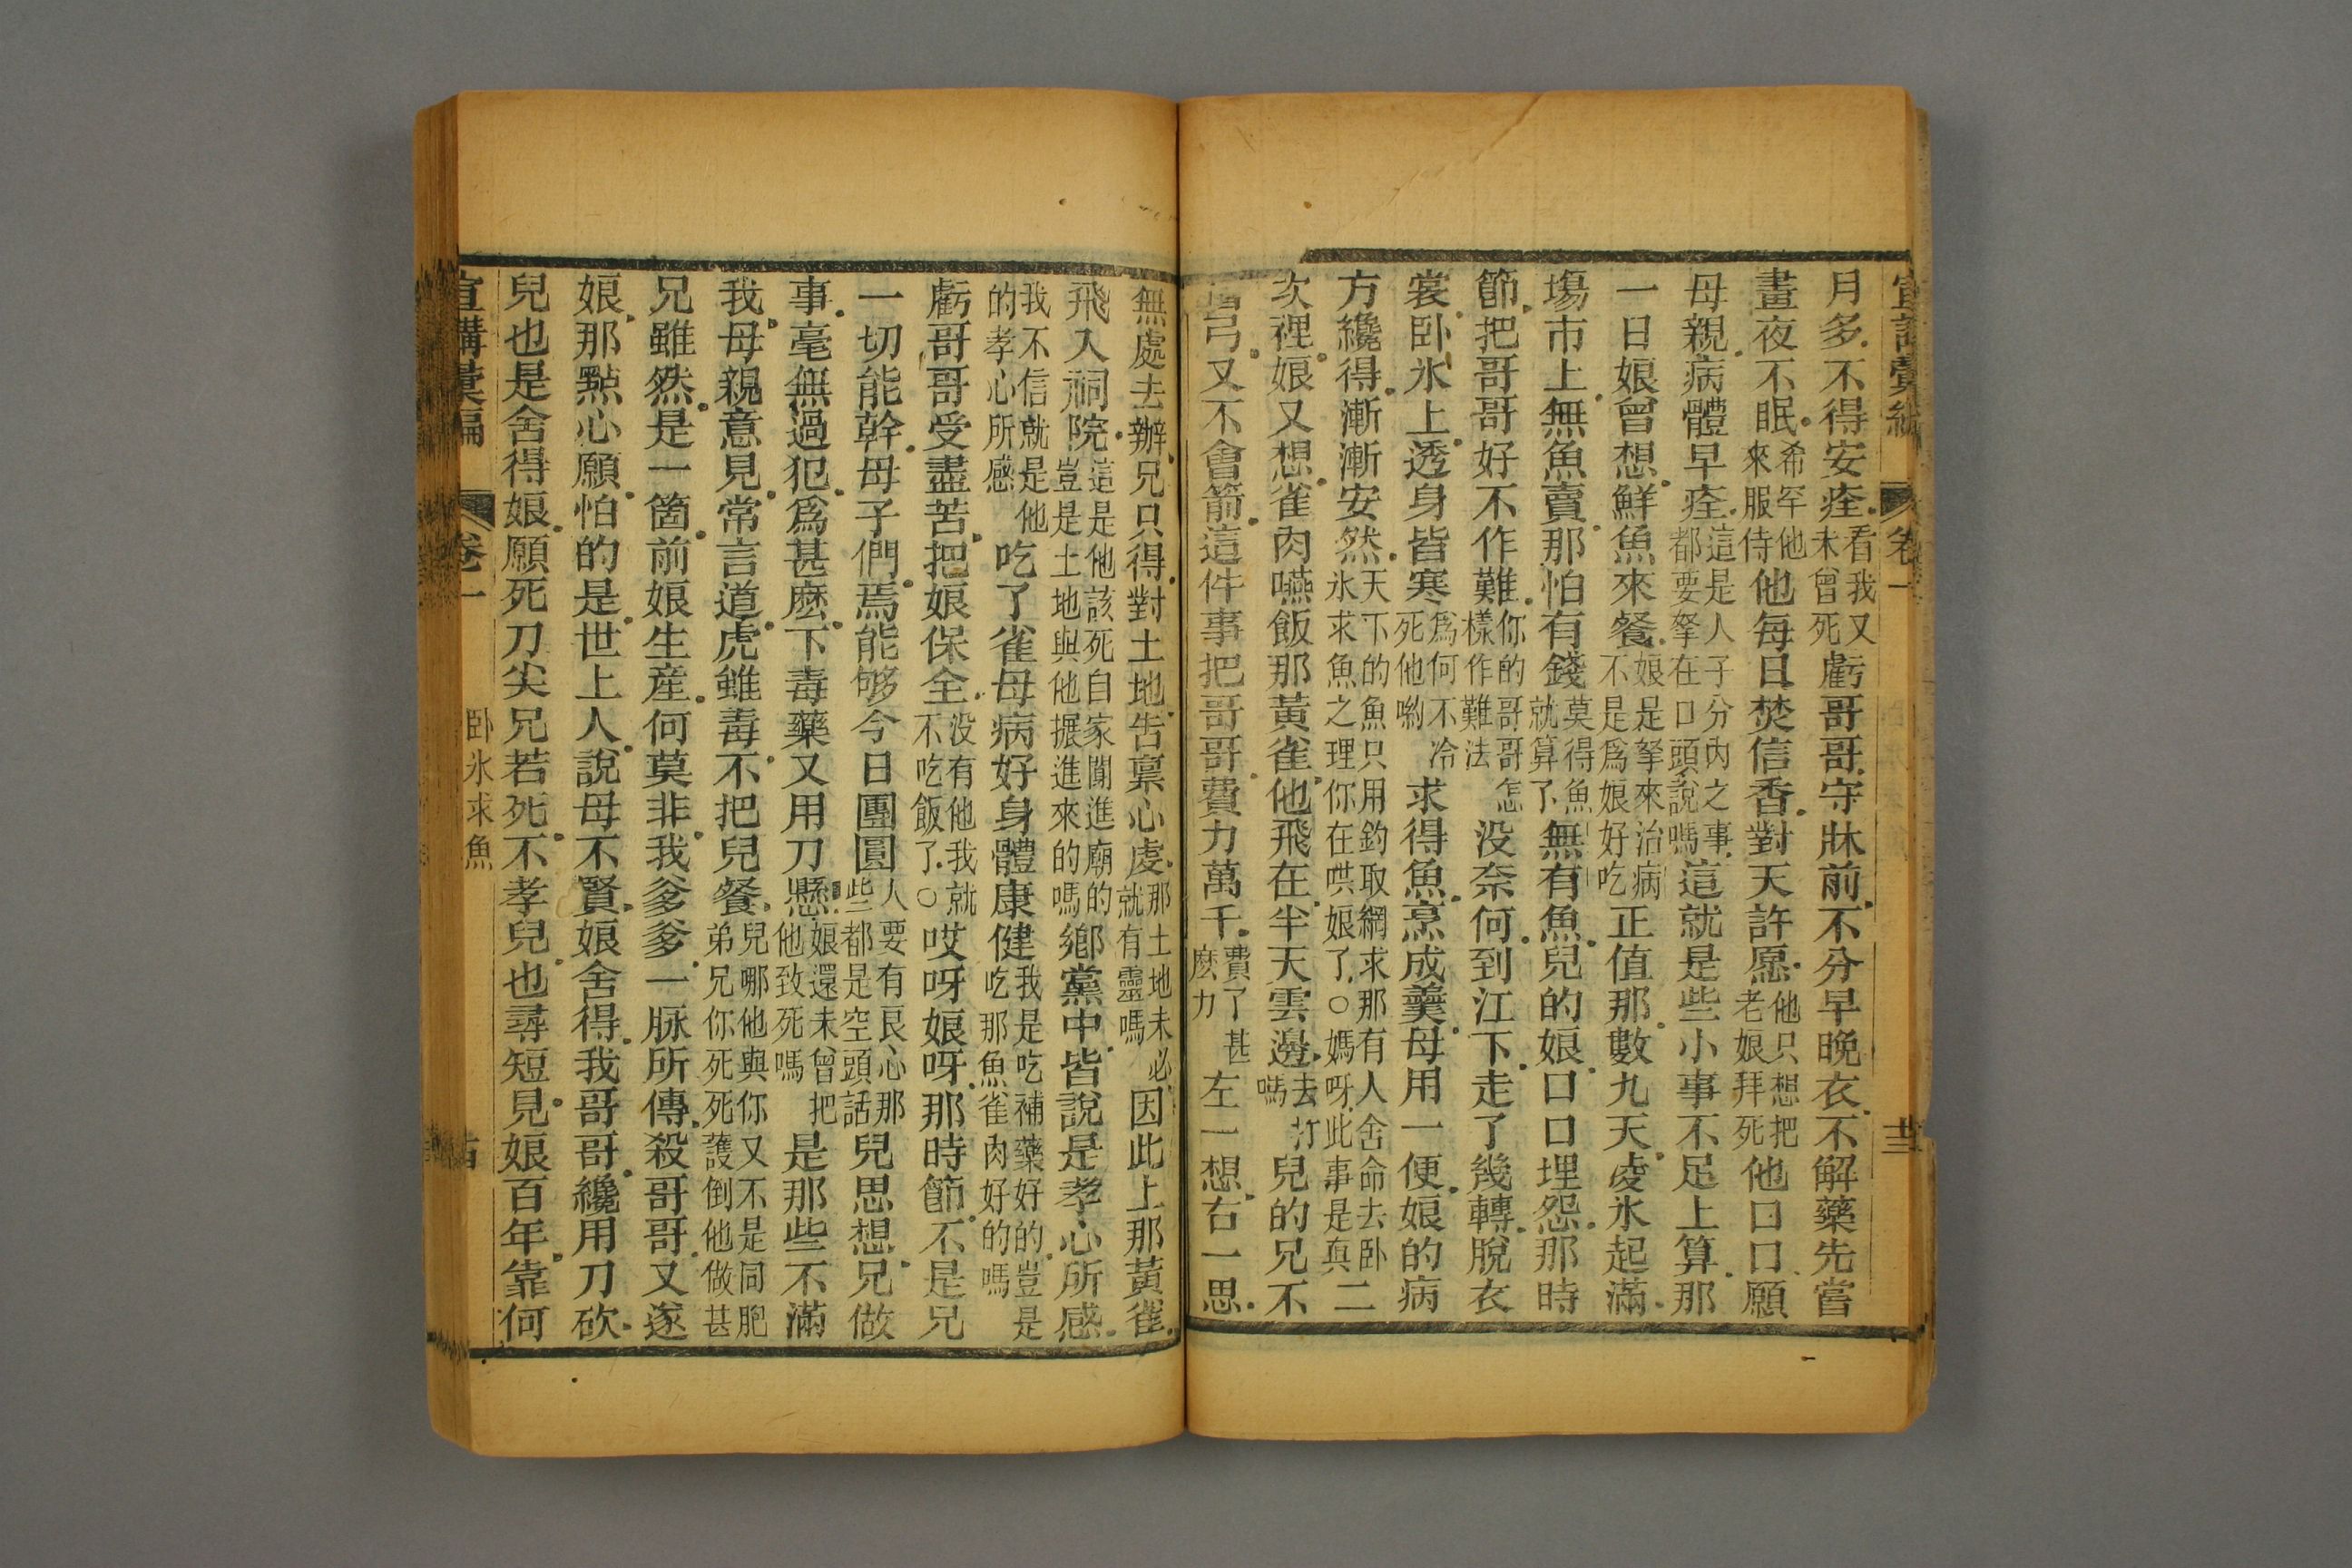 宣講彙編 卷一 廿三
月多不得安痊看我又未曾死虧哥哥守牀前不分早晚衣不解藥先嘗
晝夜不眠希罕他來服侍他每日焚信香對天許愿他只想把老娘拜死他口口願
母親病體早痊這是人子分內之事都要拏在口頭說嗎這就是些小事不足上算那
一日娘曾想鮮魚來餐娘是拏來治病不是爲娘好吃正值那數九天凌氷起滿
塲市上無魚賣那怕有錢莫得魚就算了無有魚兒的娘口口埋怨那時
節把哥哥好不作難你的哥哥怎樣作難法没奈何到江下走了幾轉脫衣
裳卧氷上透身皆寒爲何不冷死他喲求得魚烹成羹母用一便娘的病
方纔得漸漸安然天下的魚只用釣取網求那有人舍命去卧氷求魚之理你在哄娘了○媽呀此事是真二
次裡娘又想雀肉嚥飯那黃雀他飛在半天雲邊去打嗎兒的兄不
弓又不會箭這件事把哥哥費力萬千費了甚麽力左一想右一思
無處去辦兄只得對土地告禀心處那土地未必就有靈嗎因此上那黃雀
飛入祠院這是他該死自家闖進廟的豈是土地與他攆進來的嗎鄉黨中皆說是孝心所感
我不信就是他的孝心所感吃了雀母病好身體康健我是吃補藥好的豈是吃那魚雀肉好的嗎
虧哥哥受盡苦把娘保全没有他我就不吃飯了○哎呀娘呀那時節不是兄
一切能幹母子們焉能够今日團圓人要有良心那些都是空頭話兒思想兄做
事毫無過犯爲甚麽下毒藥又用刀懸娘還未曾把他致死嗎是那些不滿
我母親意見常言道虎雖毒不把兒餐兒哪他與你又不是同胞弟兄你死死護倒他做甚
兄雖然是一箇前娘生産何莫非我爹爹一脉所傳殺哥哥又遂
娘那點心願怕的是世上人說母不賢娘舍得我哥哥纔用刀砍
兒也是舍得娘願死刀尖兄若死不孝兒也尋短見娘百年靠何
宣講彙編 卷一 卧氷求魚